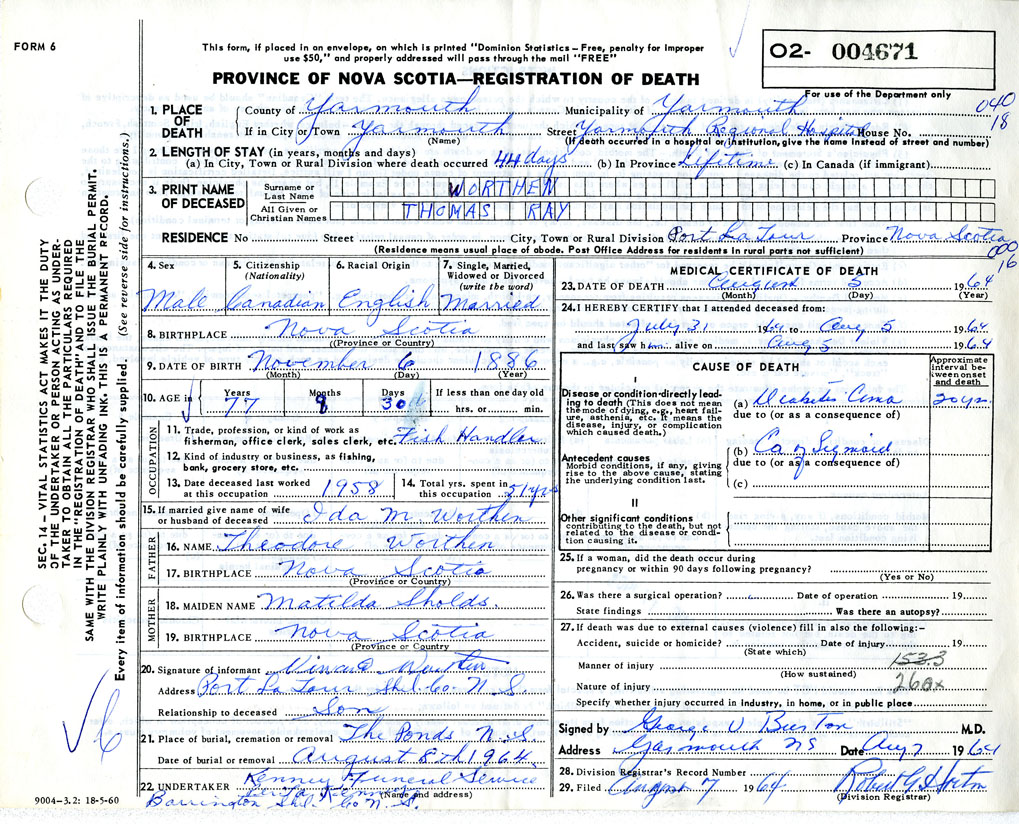 FORM 6
This form, if placed in an envelope, on which is printed "Dominion Statistics – Free, penalty for improper
use $50," and properly addressed will pass through the mail "FREE"
PROVINCE OF NOVA SCOTIA—REGISTRATION OF DEATH
O2- 004671
For use of the Department only
040
18
1. PLACE OF DEATH
County of Yarmouth Municipality of Yarmouth
If in City or Town Yarmouth Street Yarmouth Regional Hospital House No.
(Name) (If death occurred in a hospital or institution, give the name instead of street and number)
2. LENGTH OF STAY (in years, months and days)
(a) In City, Town or Rural Division where death occurred 44 days (b) In Province Lifetime (c) In Canada (if immigrant)
3. PRINT NAME OF DECEASED
Surname or Last Name WORTHEN
All Given or Christian Names THOMAS RAY
RESIDENCE No Street City, Town or Rural Division Port La Tour Province Nova Scotia
(Residence means usual place of abode. Post Office Address for residents in rural parts not sufficient)
000
16
4. Sex 5. Citizenship (Nationality) 6. Racial Origin 7. Single, Married, Widowed or Divorced (write the word)
Male Canadian English Married
8. BIRTHPLACE Nova Scotia
(Province or Country)
9. DATE OF BIRTH November 6 1886
(Month) (Day) (Year)
10. AGE in Years 77 Months 8 Days 30 If less than one day old hrs. or min.
OCCUPATION
11. Trade, profession, or kind of work as
fisherman, office clerk, sales clerk, etc. Fish Handler
12. Kind of industry or business, as fishing,
bank, grocery store, etc.
13. Date deceased last worked at this occupation 1958
14. Total yrs. spent in this occupation 51 yrs
15. If married give name of wife
or husband of deceased Ida M. Worthen
FATHER
16. NAME Theodore Worthen
17. BIRTHPLACE Nova Scotia
(Province or Country)
MOTHER
18. MAIDEN NAME Matilda Sholds.
19. BIRTHPLACE Nova Scotia
(Province or Country)
20. Signature of informant Worthen
Address Port La Tour Shel. Co. N.S.
Relationship to deceased Son
21. Place of burial, cremation or removal The Ponds N.S.
Date of burial or removal August 8th 1964
22. UNDERTAKER Kenney Funeral Service
(Name and address)
Barrington Shel. Co N.S.
9004-3.2: 18-5-60
MEDICAL CERTIFICATE OF DEATH
23. DATE OF DEATH August 5 1964
(Month) (Day) (Year)
24. I HEREBY CERTIFY that I attended deceased from:
July 31 1964 to Aug 5 1964
and last saw him alive on Aug 5 1964
CAUSE OF DEATH
Approximate interval between onset and death
I
Disease or condition directly leading to death (This does not mean the mode of dying, e.g., heart failure, asthenia, etc. It means the disease, injury, or complication which caused death.)
(a) Diabetes Coma 20 yrs.
due to (or as a consequence of)
Antecedent causes
Morbid conditions, if any, giving rise to the above cause, stating the underlying condition last.
(b) Ca of Sigmoid
due to (or as a consequence of)
(c)
II
Other significant conditions
contributing to the death, but not related to the disease or condition causing it.
25. If a woman, did the death occur during
pregnancy or within 90 days following pregnancy?
(Yes or No)
26. Was there a surgical operation? Date of operation 19
State findings Was there an autopsy?
27. If death was due to external causes (violence) fill in also the following:–
Accident, suicide or homicide? Date of injury 19
(State which)
Manner of injury 153.3
(How sustained)
Nature of injury 260x
Specify whether injury occurred in industry, in home, or in public place
Signed by George V Burton M.D.
Address Yarmouth NS Date Aug 7 1964
28. Division Registrar's Record Number
29. Filed August 7 1964 Robert G Horton
(Division Registrar)
SEC. 14 – VITAL STATISTICS ACT MAKES IT THE DUTY
OF THE UNDERTAKER OR PERSON ACTING AS UNDER-
TAKER TO OBTAIN ALL THE PARTICULARS REQUIRED
IN THE "REGISTRATION OF DEATH" AND TO FILE THE
SAME WITH THE DIVISION REGISTRAR WHO SHALL ISSUE THE BURIAL PERMIT.
WRITE PLAINLY WITH UNFADING INK. THIS IS A PERMANENT RECORD.
Every item of information should be carefully supplied. (See reverse side for instructions.)
6